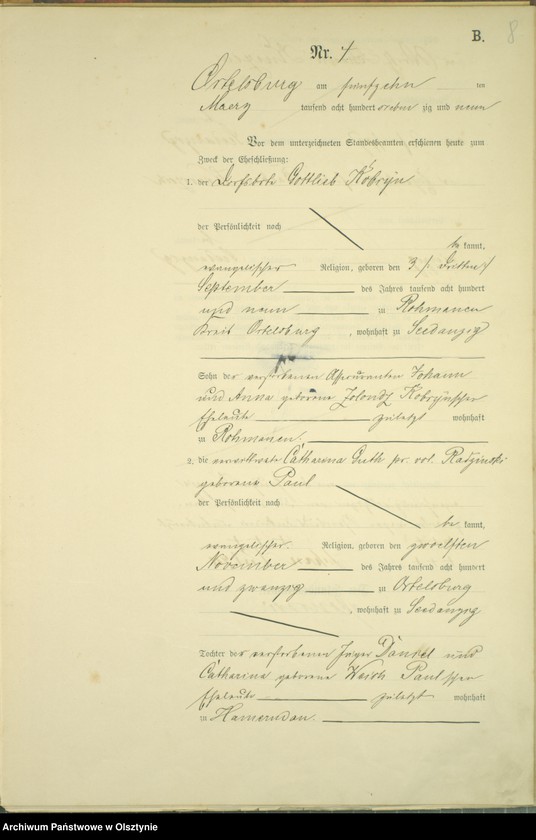 B. 8
Nr. 7
Ortelsburg am fuenfzehn ten
Maerz tausend acht hundert sieben zig und neun
Vor dem unterzeichneten Standesbeamten erschienen heute zum
Zweck der Eheschließung:
1. der Dorfsbote Gottlieb Kobryn
der Persönlichkeit nach
be kannt,
evangelischer Religion, geboren den 3./. dritten /
September des Jahres tausend acht hundert
und neun zu Rohmanen
Kreis Ortelsburg, wohnhaft zu Seedanzig
Sohn der verstorbenen Johann
und Anna geborene Zolondz Kobryn'scher
Eheleute zuletzt wohnhaft
zu Rohmanen.
2. die verwittwete Catharina Guth pr. vol.
geborene Paul
der Persönlichkeit nach
be kannt,
evangelischer. Religion, geboren den zwoelften
November des Jahres tausend acht hundert
und zwanzig zu Ortelsburg
, wohnhaft zu Seedanzig
Tochter der verstorbenen Daniel und
Catharina geborene Paul'scher
Eheleute zuletzt wohnhaft
zu
Archiwum Państwowe w Olsztynie